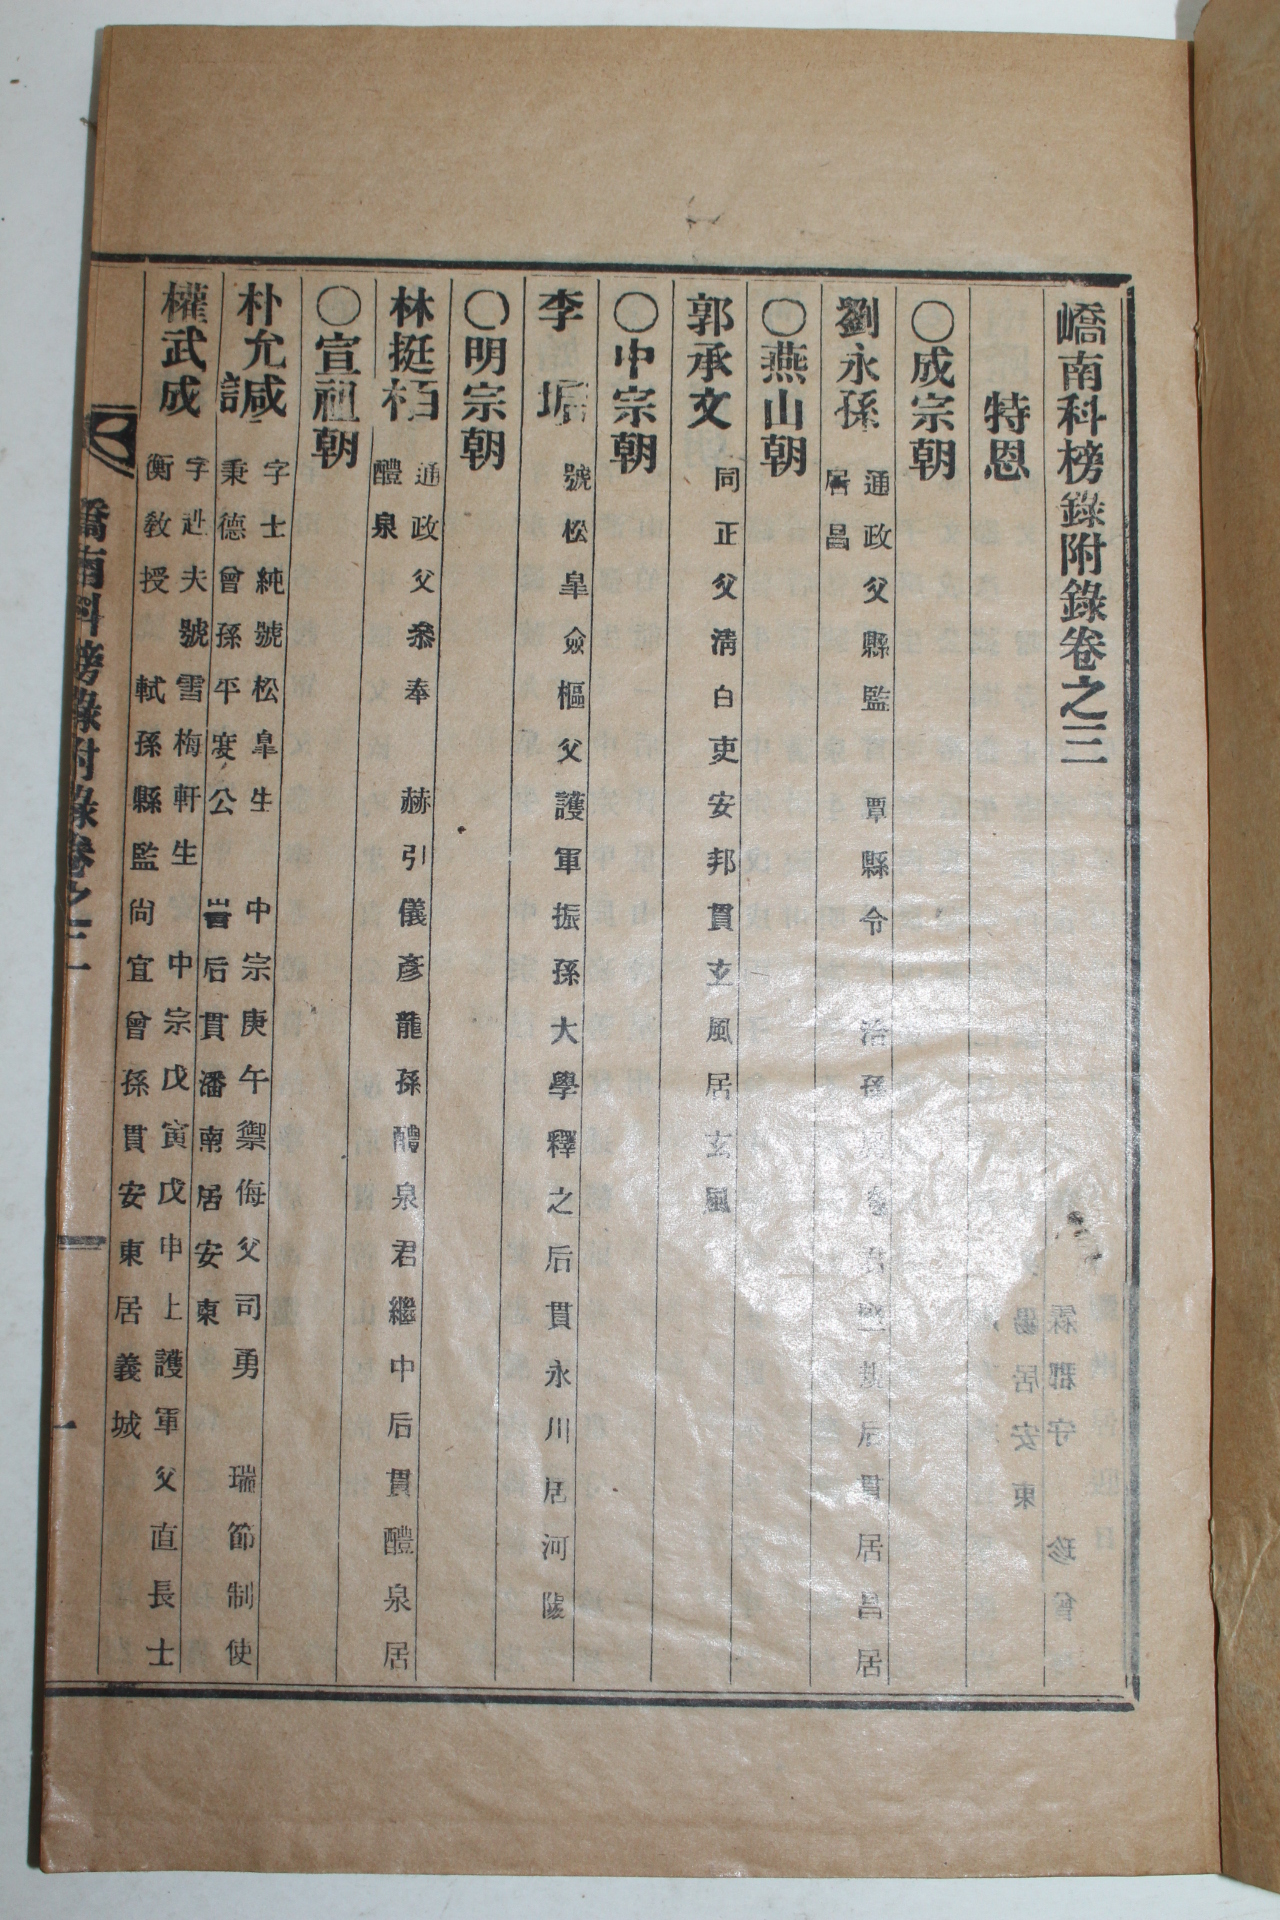 嶠南科榜錄附錄卷之三
特恩
〇成宗朝
劉永孫 通政父縣監 覃縣令 治孫 后貫居昌居
居昌
〇燕山朝
郭承文 同正父淸白吏安邦貫玄風居玄風
〇中宗朝
李 號松皐僉樞父護軍振孫大學釋之后貫永川居河陽
〇明宗朝
林挺栢 通政父叅奉 赫引儀彥龍孫醴泉君繼中后貫醴泉居
醴泉
〇宣祖朝
朴允諴 字士純號松皐生 中宗庚午禦侮父司勇 瑞節制使
秉德曾孫平度公 訔后貫潘南居安東
權武成 字赳夫號雪梅軒生 中宗戊寅戊申上護軍父直長士
衡敎授 軾孫縣監尙宜曾孫貫安東居義城
嶠南科榜錄附錄卷之三
一